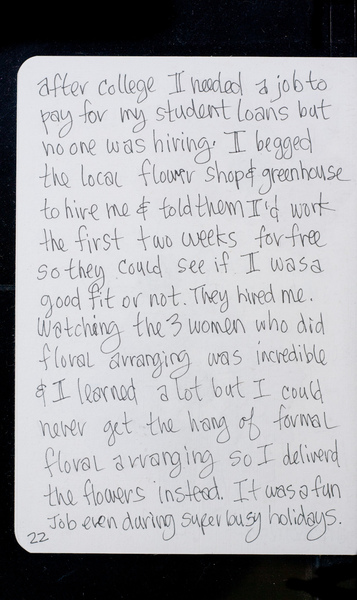 after college I needed a job to
pay for my student loans but
no one was hiring. I begged
the local flower shop & greenhouse
to hire me & told them I'd work
the first two weeks for free
so they could see if I was a
good fit or not. They hired me.
Watching the 3 women who did
floral arranging was incredible
& I learned a lot but I could
never get the hang of formal
floral arranging so I deliverd
the flowers instead. It was a fun
Job even during super busy holidays.
22